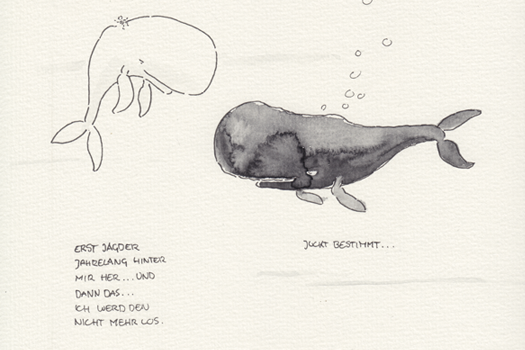 ERST JAGD ER
JAHRELANG HINTER
MIR HER...UND
DANN DAS...
ICH WERD DEN
NICHT MEHR LOS.
JUCKT BESTIMMT...